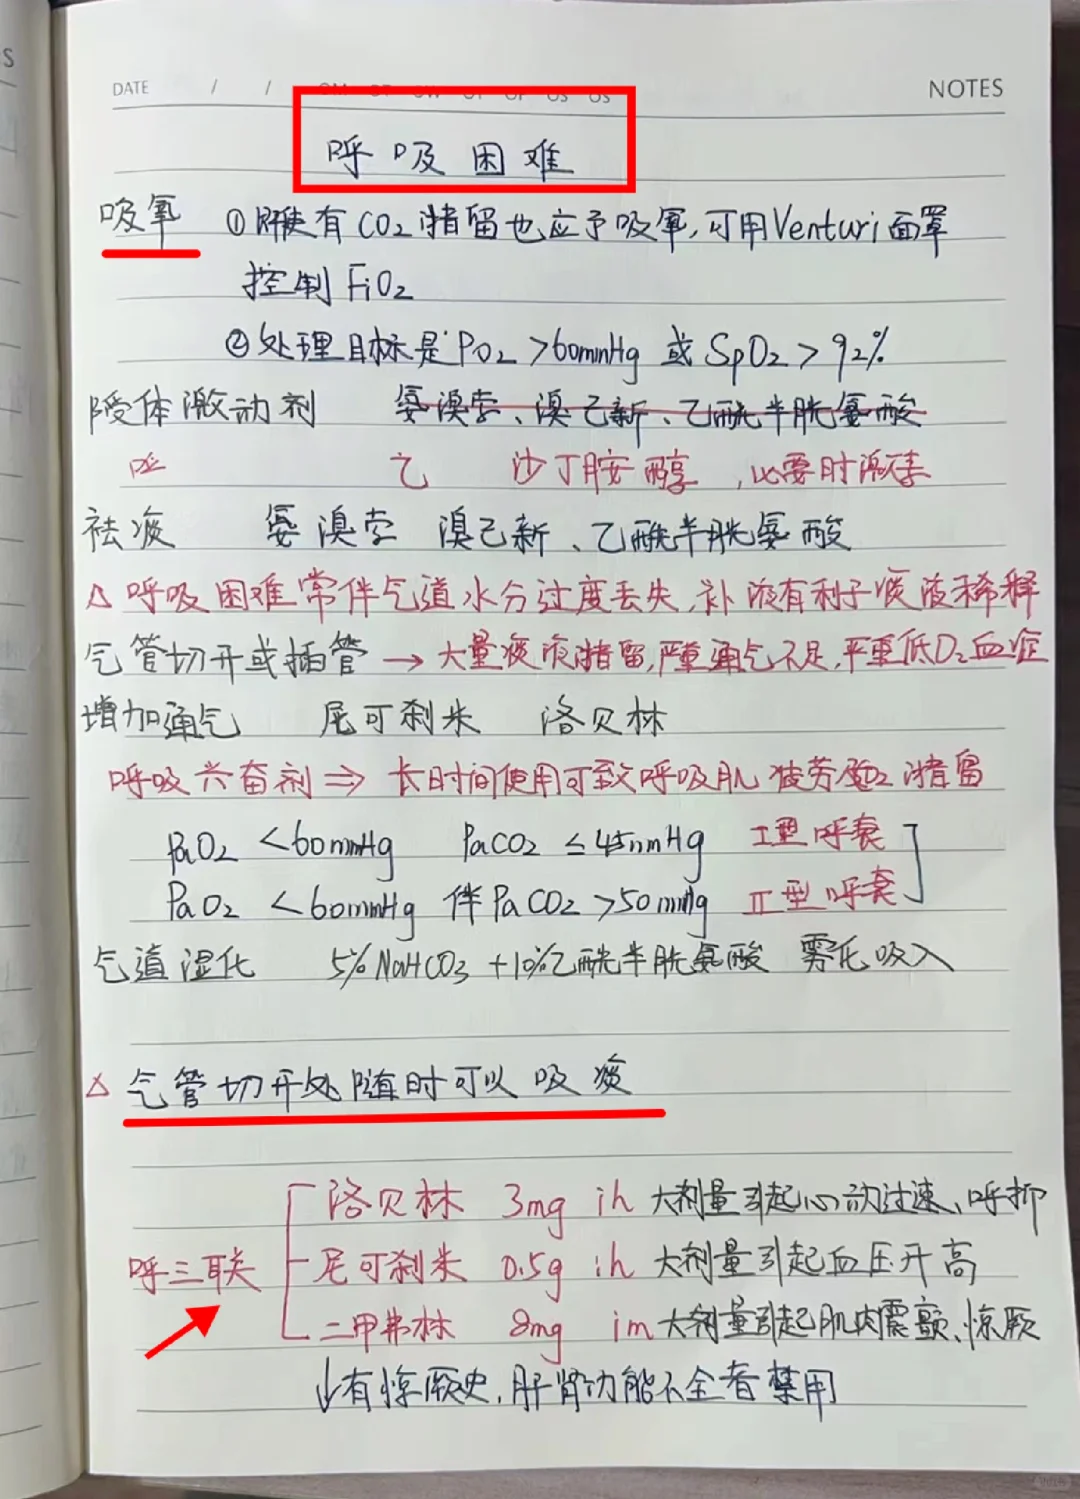 S
DATE / / NOTES
呼吸困难
吸氧 ①即使有CO2潴留也应予吸氧,可用Venturi面罩
控制FiO2
②处理目标是PO2>60mmHg 或SpO2>92%
受体激动剂 氨溴索、溴己新、乙酰半胱氨酸
沙丁胺醇,必要时激素
祛痰 氨溴索 溴己新、乙酰半胱氨酸
△呼吸困难常伴气道水分过度丢失,补液有利于痰液稀释
气管切开或插管→大量痰液潴留,严重通气不足,严重低O2血症
增加通气 尼可刹米 洛贝林
呼吸兴奋剂⇒长时间使用可致呼吸肌疲劳 潴留
PaO2 <60mmHg PaCO2 ≤45mmHg I型呼衰
PaO2 <60mmHg 伴PaCO2 >50mmHg II型呼衰
气道湿化 5%NaHCO3+10%乙酰半胱氨酸 雾化吸入
△气管切开处随时可以吸痰
洛贝林 3mg ih 大剂量引起心动过速、呼抑
呼三联 尼可刹米 0.5g ih 大剂量引起血压升高
二甲弗林 8mg im 大剂量引起肌肉震颤、惊厥
↓有惊厥史,肝肾功能不全者禁用